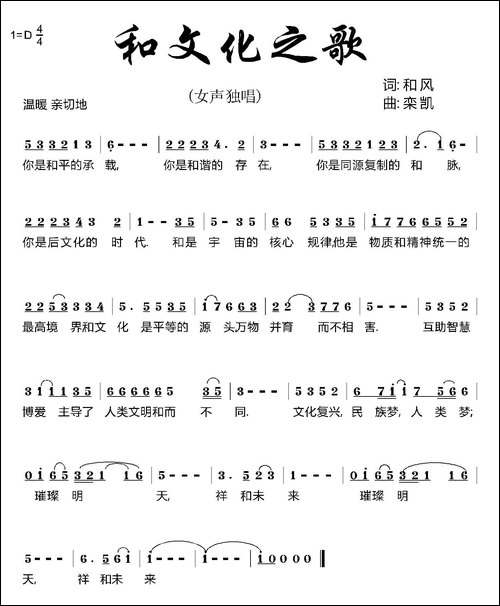 和文化之歌
1=D 4/4
(女声独唱)
词:和风
曲:栾凯
温暖 亲切地
5 3 3 2 1 3 | 6 - - - | 2 2 2 3 4 . 2 | 3 - - - | 5 3 3 2 1 3 5 | 2 . 1 6 - |
你是和平的承 载, 你是和谐的 存 在, 你是同源复制的 和 脉,
2 2 2 3 4 3 2 | 1 - - 3 5 | 5 - - 3 5 | 6 6 5 3 3 5 | 1 7 7 6 6 5 5 5 |
你是后文化的 时 代. 和是 宇 宙的 核心 规律,他是 物质和精神统一的
2 2 5 3 3 3 3 4 | 5 . 5 5 3 5 | 1 7 6 6 3 | 2 2 3 7 7 6 | 5 - - - | 5 3 5 2
最高境 界和文 化 是平等的 源 头万物 并育 而不相 害. 互助智慧
3 1 1 1 3 5 | 6 6 6 6 6 5 | 3 5 | 3 - - - | 5 3 5 2 | 6 7 1 7 1 |
博爱 主导了 人类文明和而 不 同. 文化复兴, 民 族梦, 人 类 梦;
0 1 6 5 3 2 1 1 6 | 1 - - - | 3 . 5 2 3 | 1 - - - | 0 1 6 5 3 2 1 1 6 |
璀璨 明 天, 祥 和未 来 璀璨 明
5 - - - | 6 . 5 6 1 | 1 - - - | 1 - - - | 1 0 0 0 0 ‖
天, 祥 和未 来